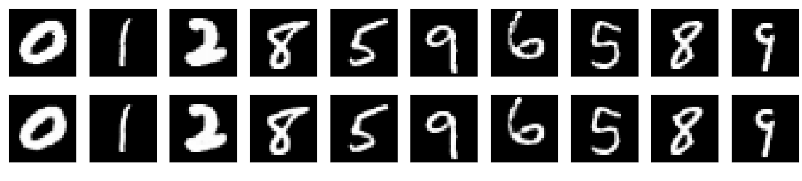 0 1 2 8 5 9 6 5 8 9
0 1 2 8 5 9 6 5 8 9